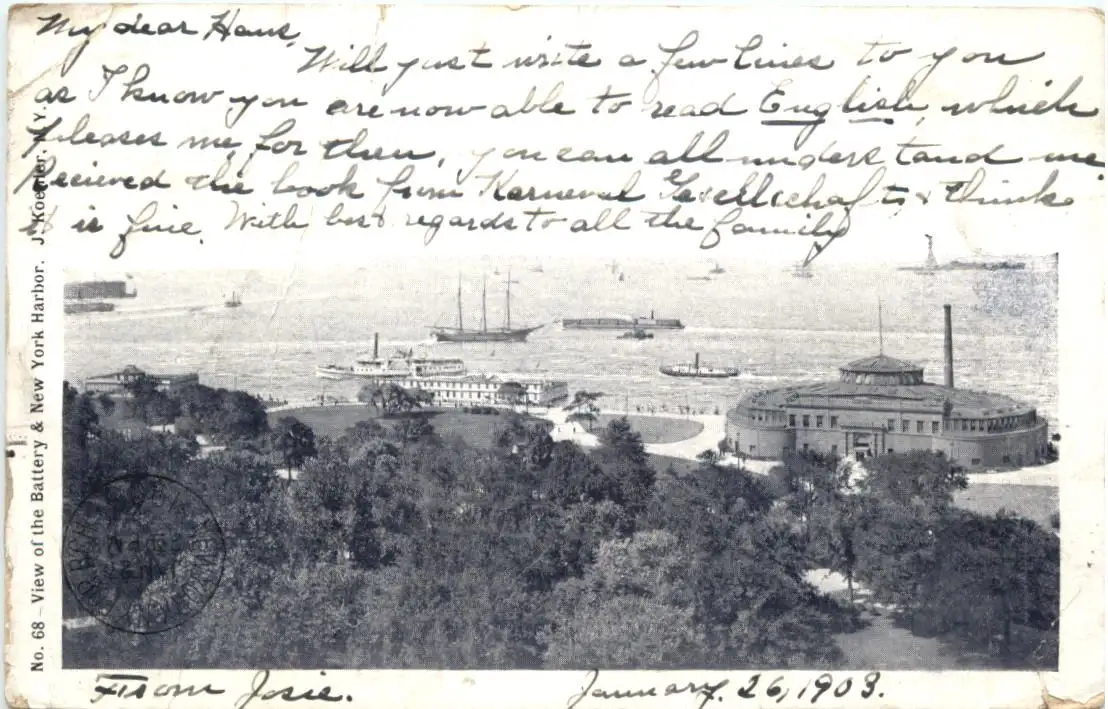 My dear Hans,
Will just write a few lines to you
as I know you are now able to read English, which
pleases me, for then, you can all understand me.
Recieved the book from Karneval Gesellschaft & think
it is fine. With best regards to all the family
No. 68 – View of the Battery & New York Harbor. J. Koehler, N. Y.
From Josie.
January. 26, 1903.